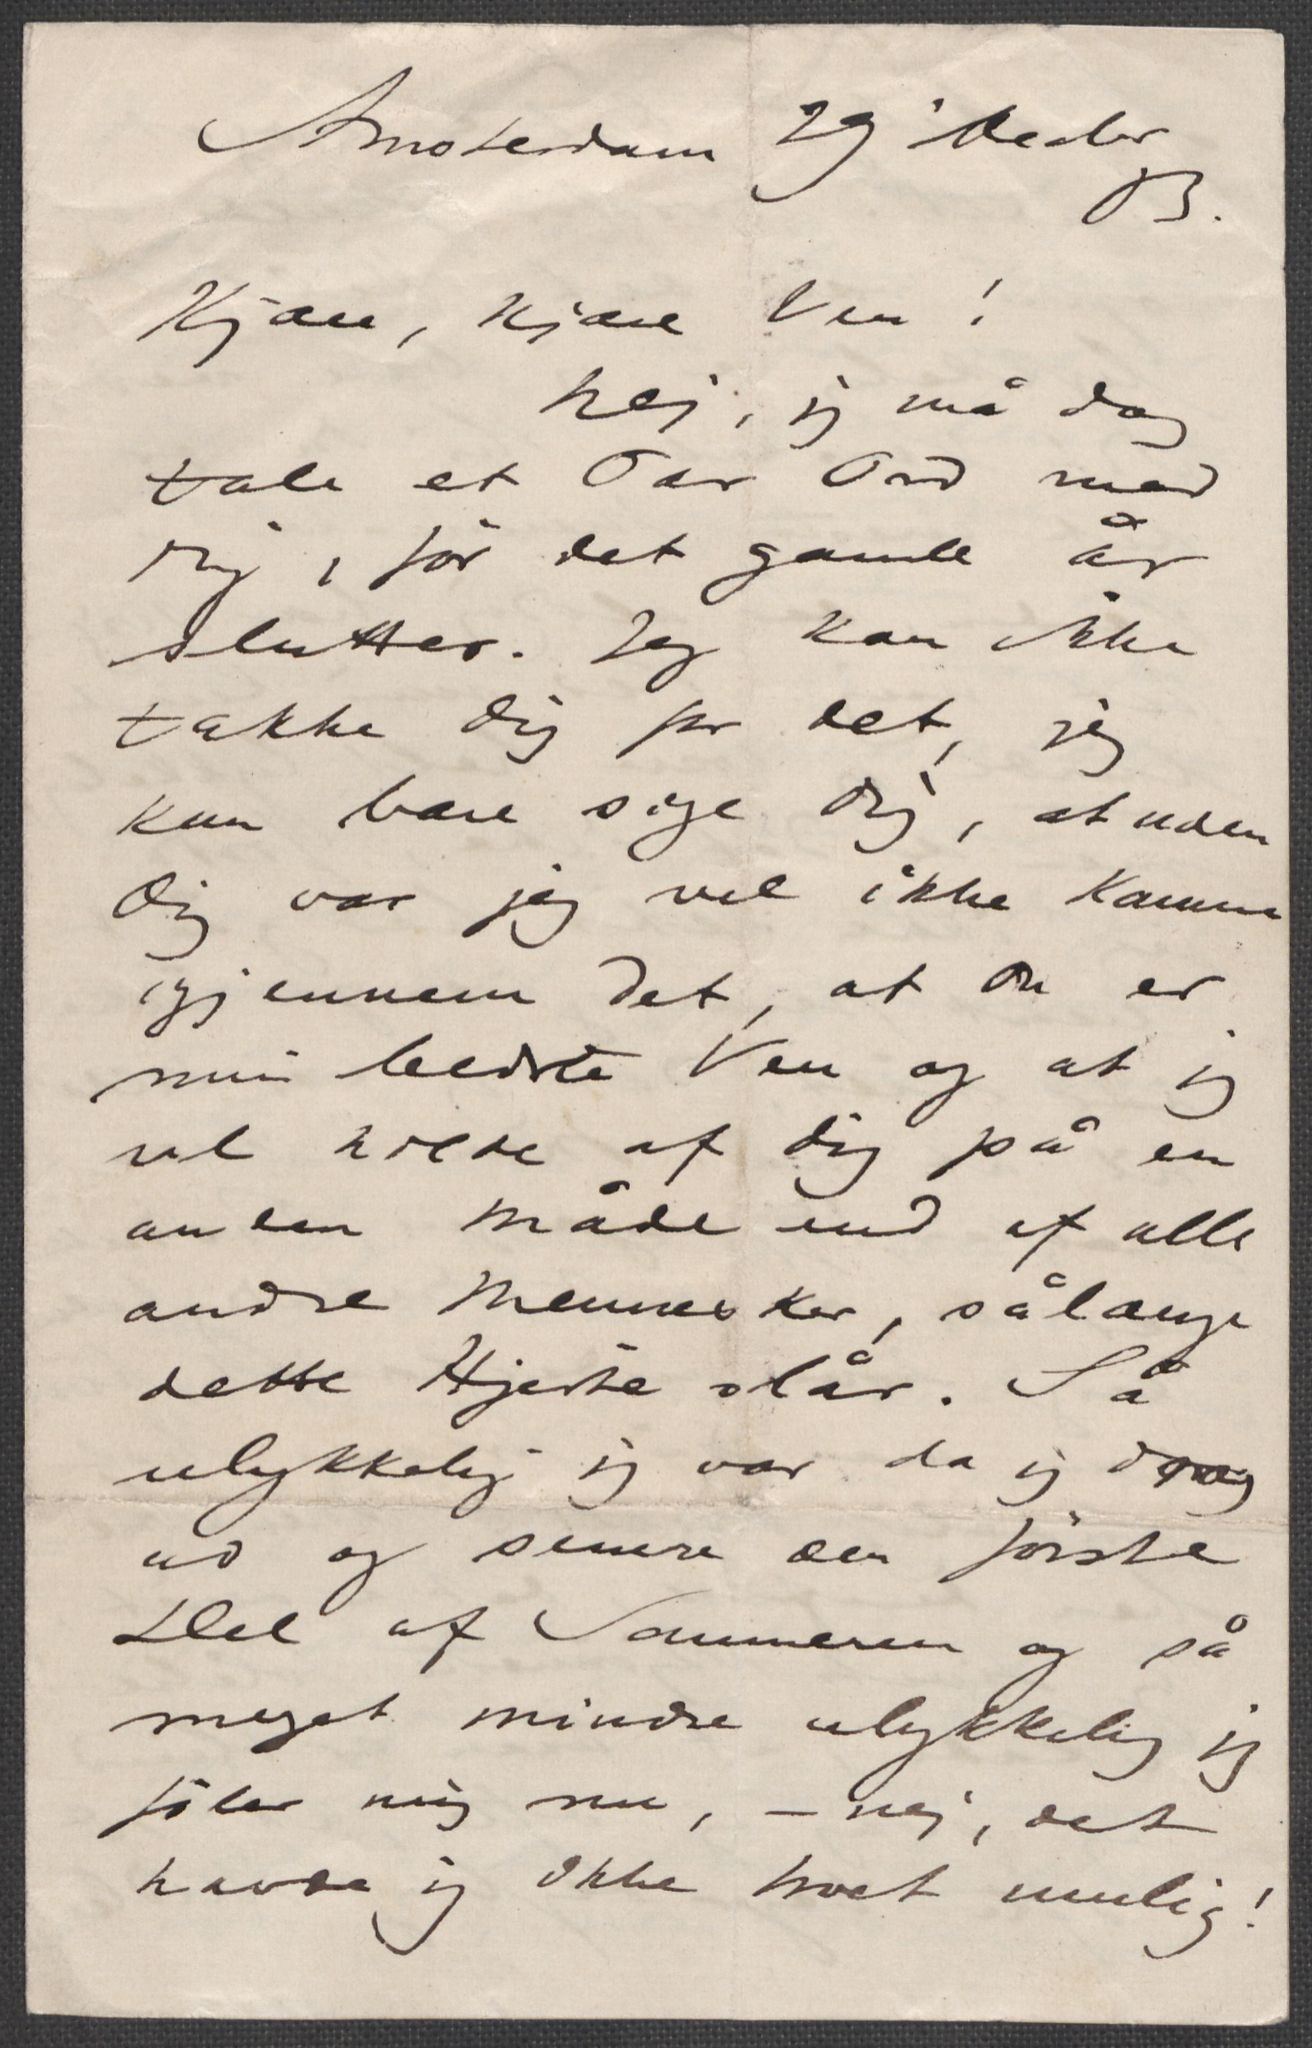 Amsterdam 29 Decbr
83.
Kjære, kjære Ven!
Nej, jeg må dog
tale et Par Ord med
Dig, før det gamle år
slutter. Jeg kan ikke
takke Dig for det, jeg
kan bare sige Dig, at uden
Dig var jeg vel ikke kommen
igjennem det, at Du er
min bedste Ven og at jeg
vil holde af Dig på en
anden Måde end af alle
andre Mennesker, sålænge
dette Hjerte slår. Så
ulykkelig jeg var da jeg drog
ud og senere den første
Del af Sommeren og så
meget mindre ulykkelig jeg
føler mig nu, – nej, det
havde jeg ikke troet mulig!